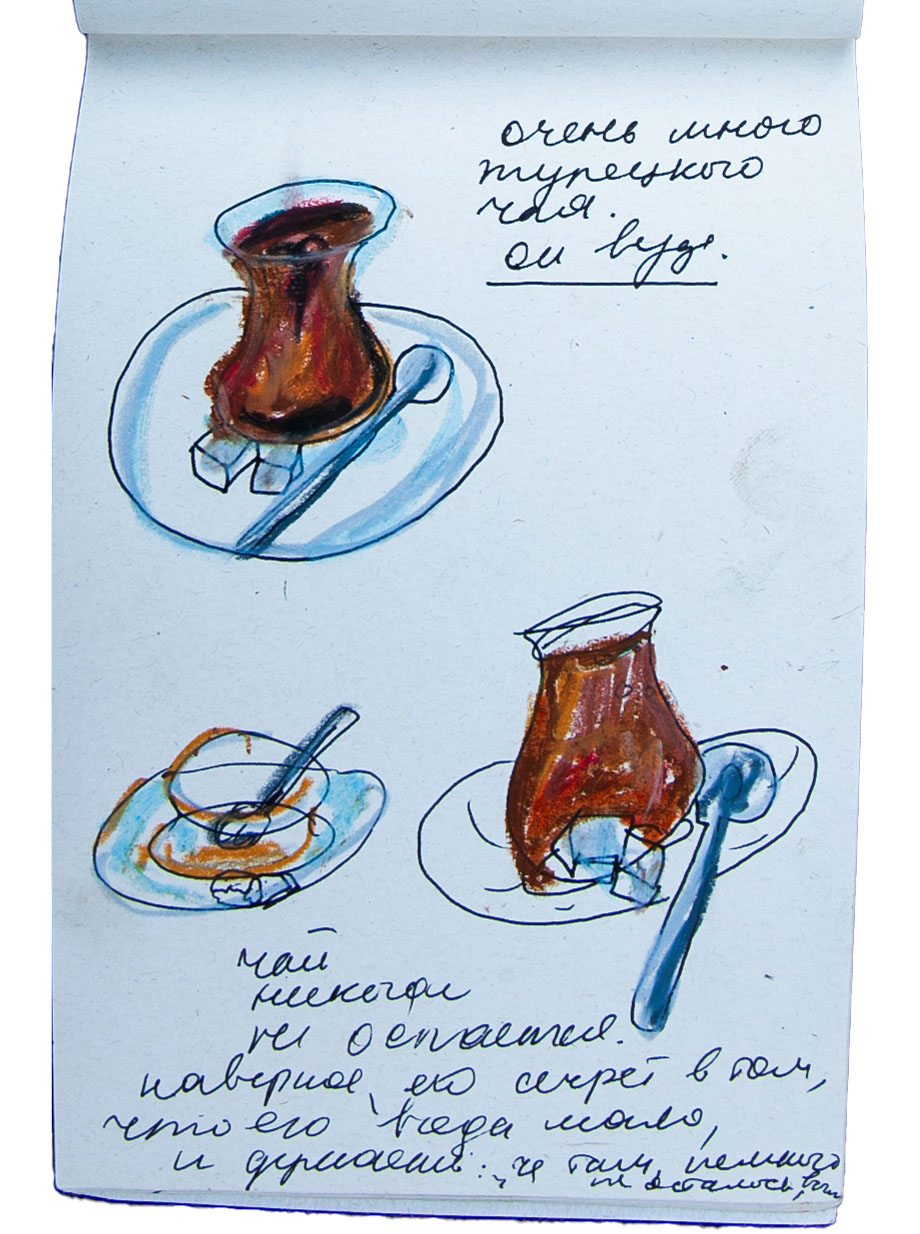 очень много
турецкого
чая.
он везде.
чай
никогда
не остается.
наверное, его секрет в том,
что его всегда мало,
и думаешь: че там, немного
осталось,